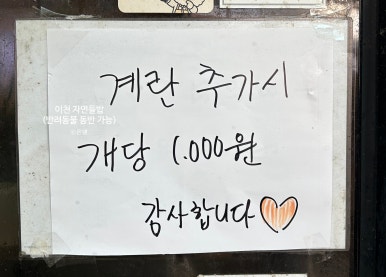 계란 추가시
이천 자연들밥
(반려동물 동반 가능)
개당 1.000원
감사합니다